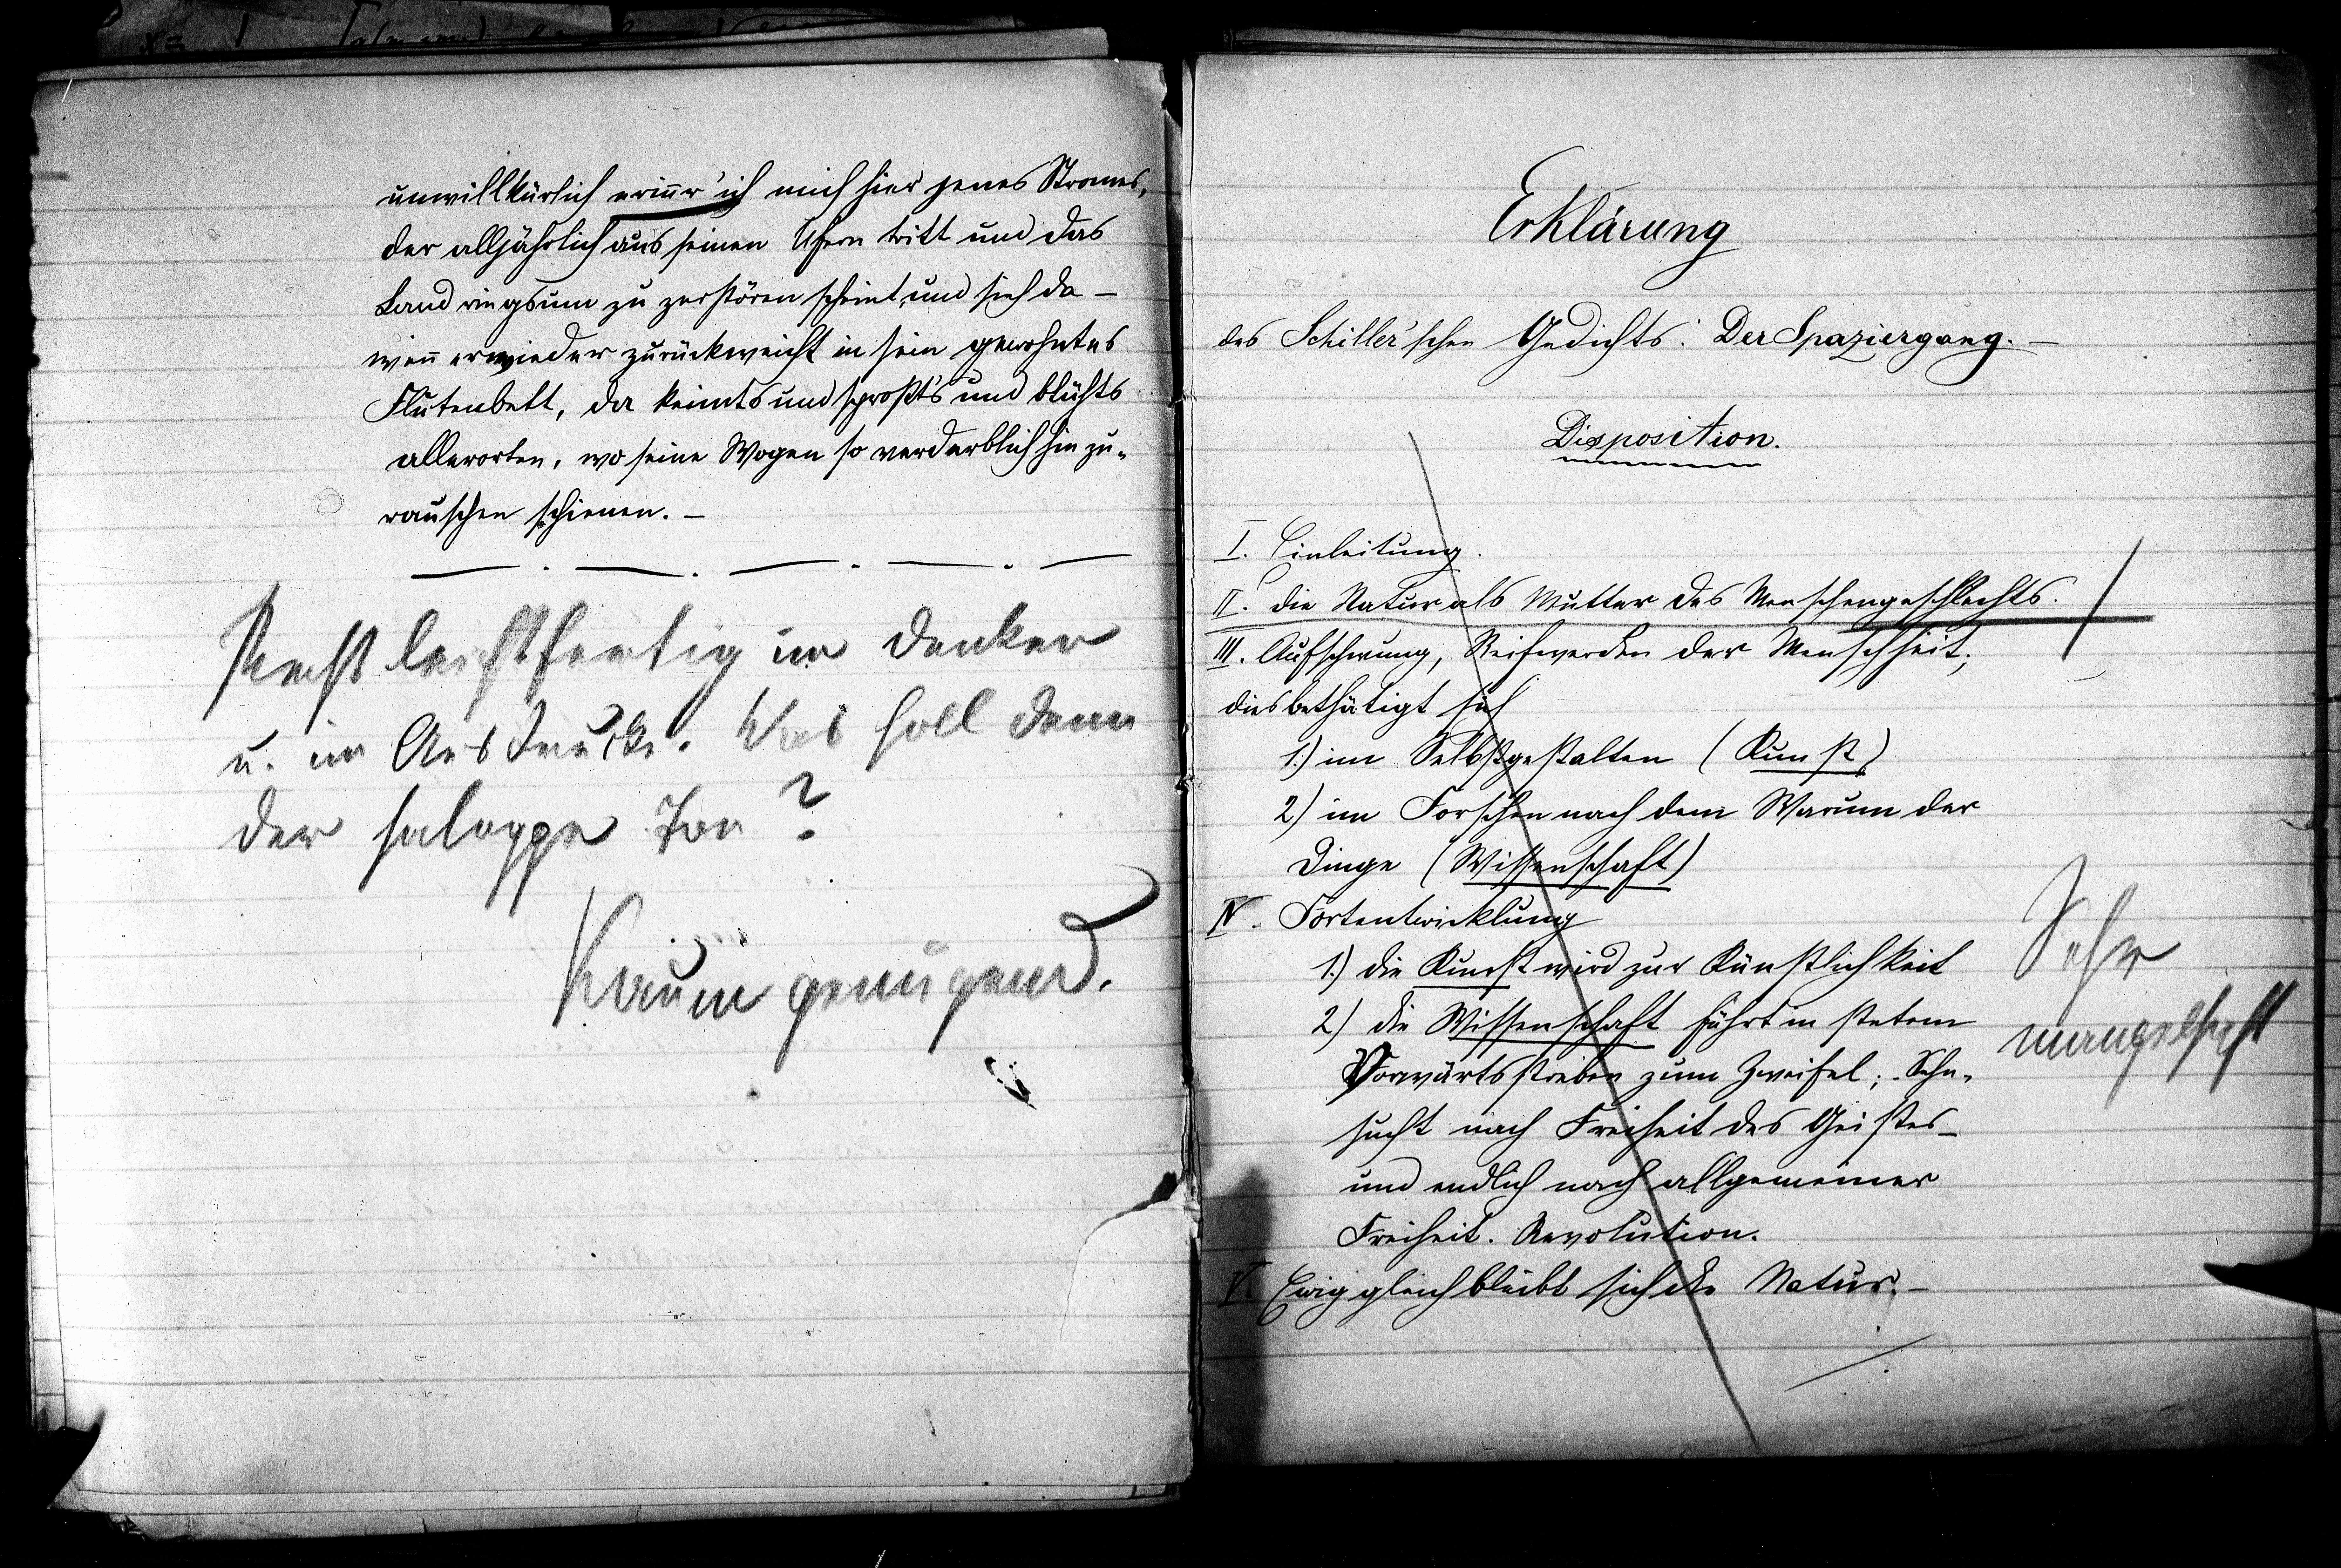 unwillkürlich erinn̄r' ich mich hier jenes Stromes,
der alljährlich aus seinen Ufern tritt und das
Land ringsum zu zerstören scheint, und sieh da –
wen̄ er wieder zurückweicht in sein gewohntes
Flutenbett, da keimts und sproßt's und blühts
allerorten, wo seine Wogen so verderblich hin zu-
rauschen schienen. –
Recht leichtfertig im Denken
u. im Ausdrucke. Was soll denn
der saloppe Ton?
Kaum genügend.
Erklärung
des Schiller'schen Gedichts: Der Spaziergang. –
Disposition.
I. Einleitung.
II. die Natur als Mutter des Menschengeschlechts.
III. Aufschwung, Reifwerden der Menschheit;
dies bethätigt sich
1.) im Selbstgestalten (Kunst)
2) im Forschen nach dem Warum der
Dinge (Wissenschaft)
IV. Fortentwicklung
1.) die Kunst wird zur Künstlichkeit
2) die Wissenschaft führt in stetem
Vorwärtsstreben zum Zweifel; Sehn-
sucht nach Freiheit des Geistes –
und endlich nach allgemeiner
Freiheit. Revolution.
V. Ewig gleich bleibt sich die Natur. –
Sehr
mangelhaft